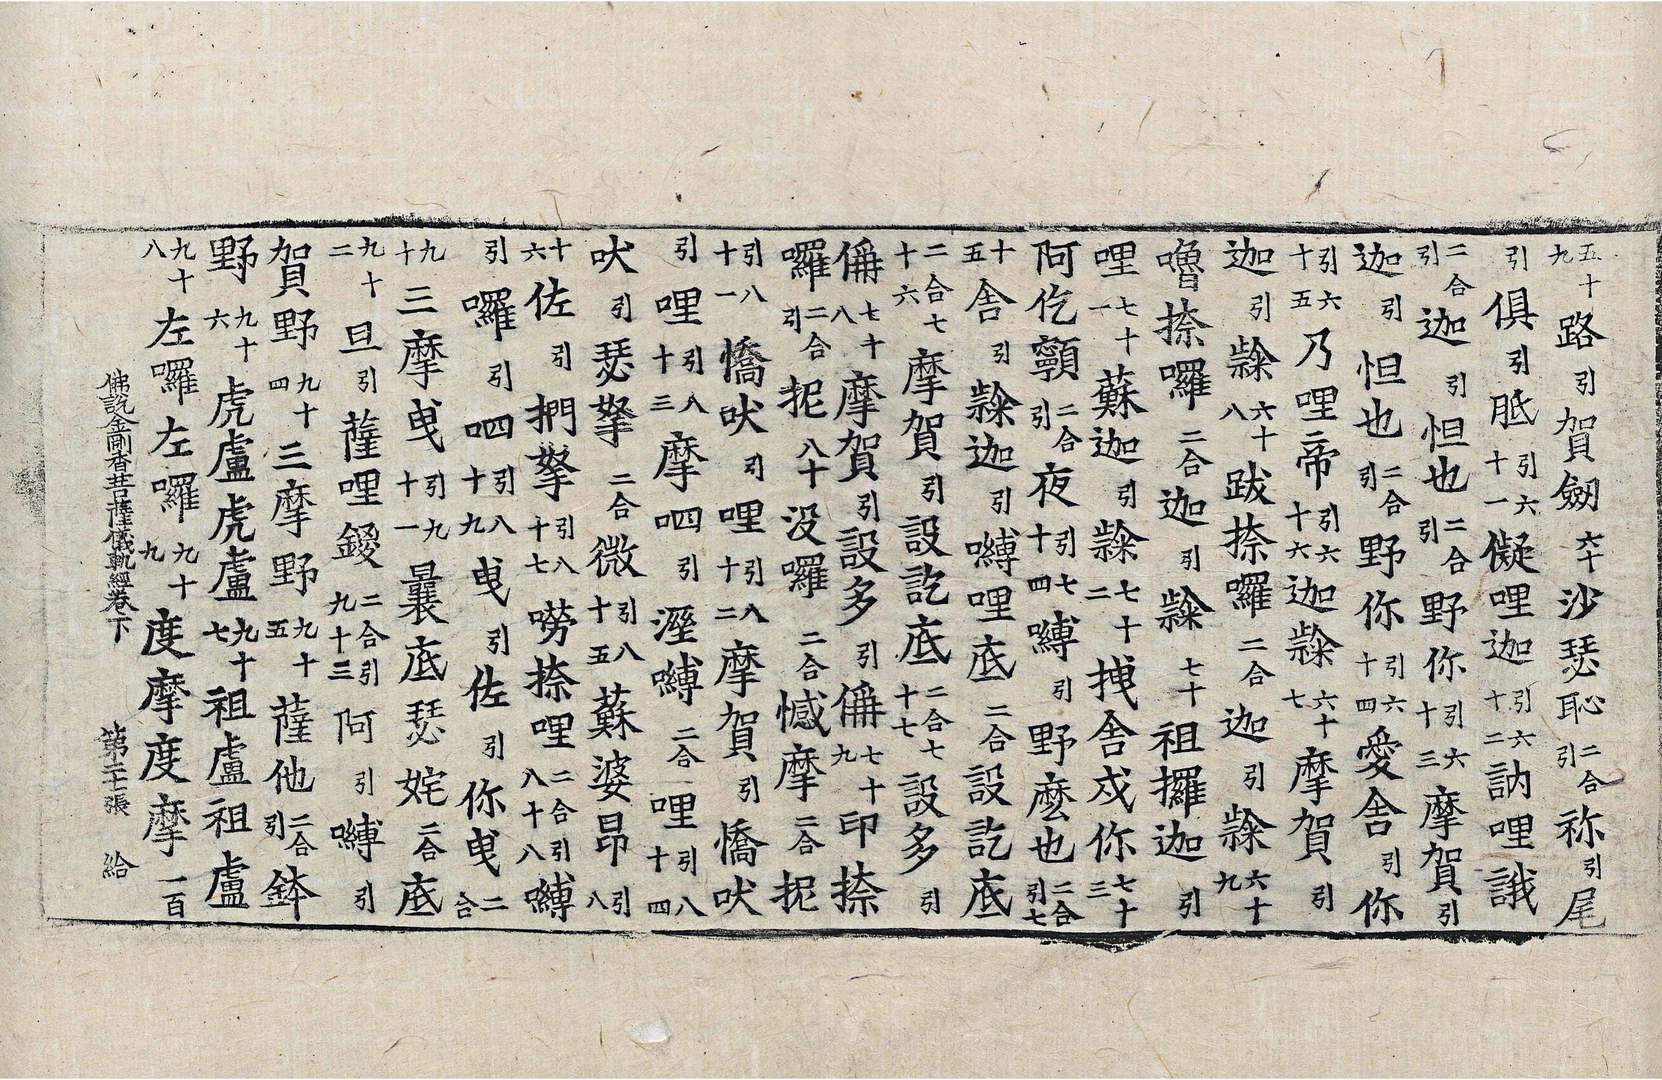 五十九路引賀劒六十沙瑟恥二合引祢引尾
引俱引胝引六十一儗哩迦引六十二訥哩誐
二合引迦引怛也二合引野你引六十三摩賀引
迦引怛也二合引野你引六十四愛舍引你
引六十五乃哩帝引六十六迦𣜩六十七摩賀引
迦引𣜩六十八跋捺囉二合迦引𣜩六十九
嚕捺囉二合迦引𣜩七十祖攞迦引
哩七十一蘇迦引𣜩七十二拽舍戍你七十三
阿仡顐二合引夜引七十四嚩引野麽也二合引七
十五舍引𣜩迦引嚩哩底二合設訖底
二合七十六摩賀引設訖底二合七十七設多引
俑七十八摩賀引設多引俑七十九印捺
囉二合引抳八十没囉二合憾摩二合抳
引八十一憍吠引哩引八十二摩賀引憍吠
引哩引八十三摩呬引濕嚩二合哩引八十四
吠引瑟拏二合微引八十五蘇婆昂引八
十六佐引捫拏引八十七嘮捺哩二合引八十八嚩
引囉引呬引八十九曳引佐引你曳二合
九十三摩曳引九十一曩底瑟姹二合底
九十二旦引薩哩鑁二合引九十三阿引嚩引
賀野九十四三摩野九十五薩他二合引鉢
野九十六虎盧虎盧九十七祖盧祖盧
九十八左囉左囉九十九度摩度摩一百
佛說金剛香菩薩儀軌經卷下 第二十七張 給